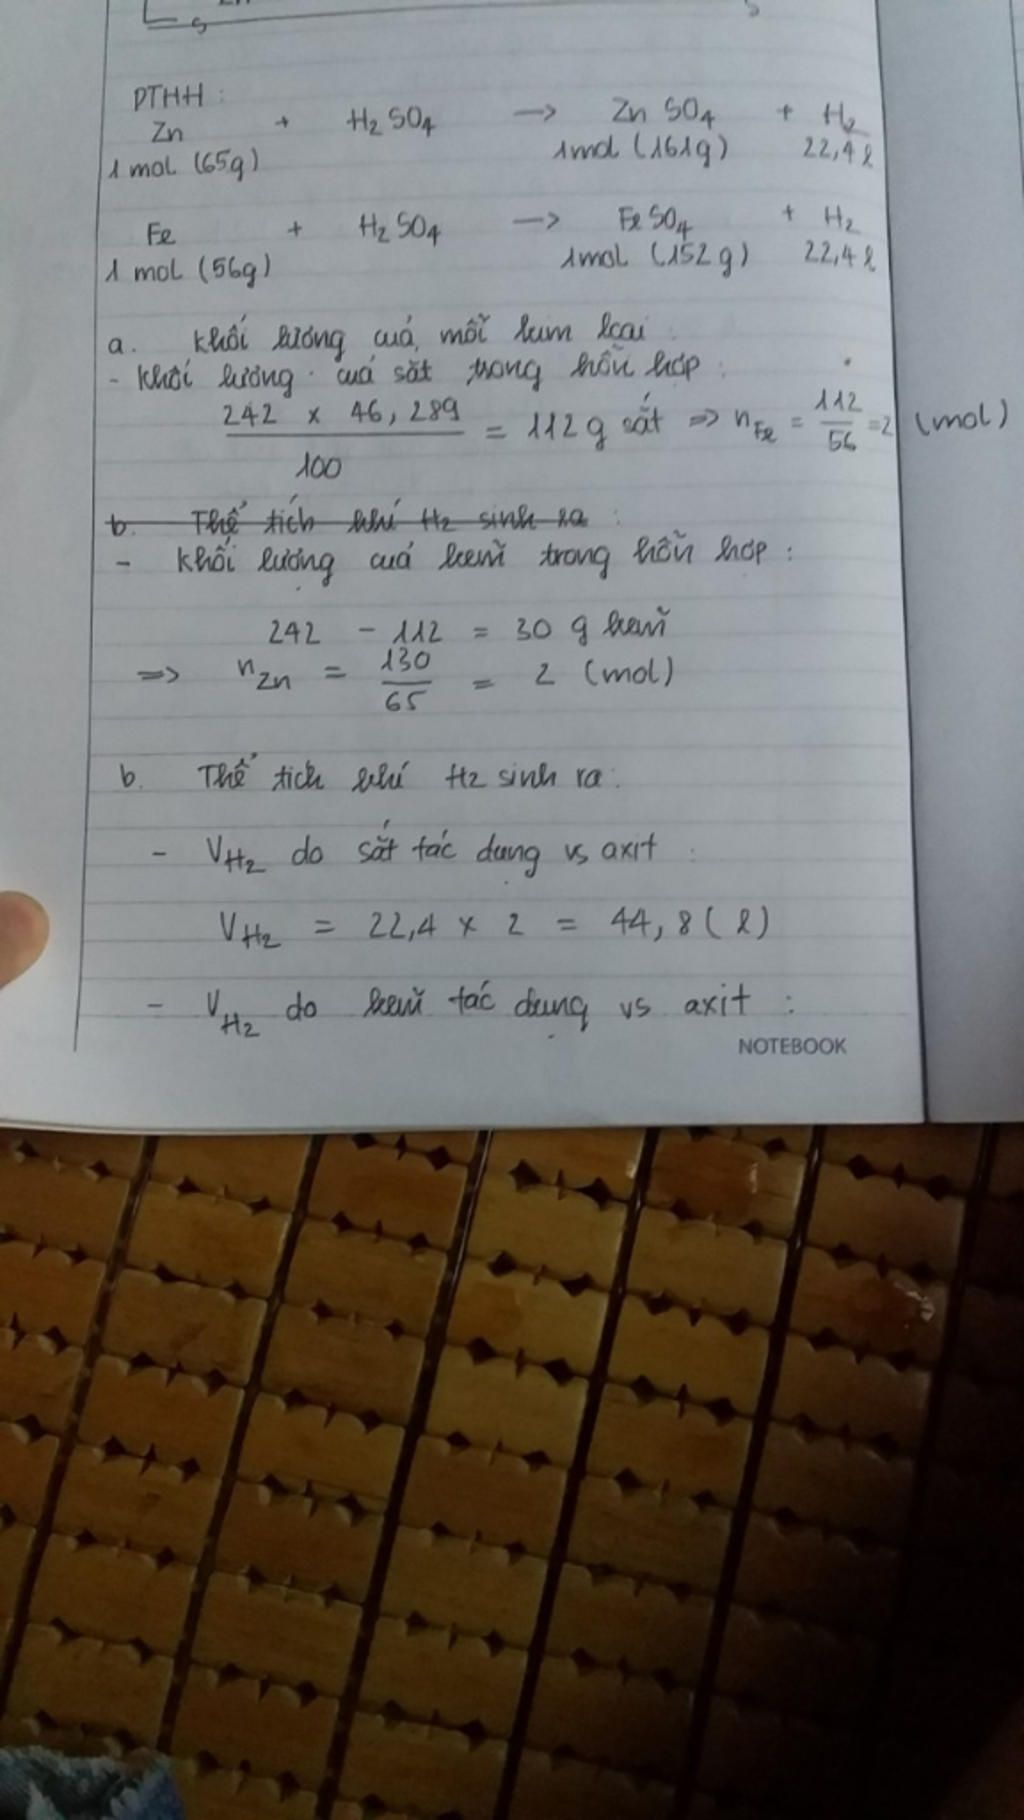 PTHH :
Zn + H2SO4 -> ZnSO4 + H2
1 mol (65g) 1mol (161g) 22,4 l
Fe + H2SO4 -> FeSO4 + H2
1 mol (56g) 1mol (152g) 22,4 l
a. Khối lượng của mỗi kim loại :
- Khối lượng của sắt trong hỗn hợp :
242 x 46,289 / 100 = 112g sắt => nFe = 112/56 = 2 (mol)
b. Thể tích khí H2 sinh ra :
- Khối lượng của kẽm trong hỗn hợp :
242 - 112 = 30 g kẽm
=> nZn = 130/65 = 2 (mol)
b. Thể tích khí H2 sinh ra :
- VH2 do sắt tác dụng vs axit :
VH2 = 22,4 x 2 = 44,8 (l)
- VH2 do kẽm tác dụng vs axit :
NOTEBOOK